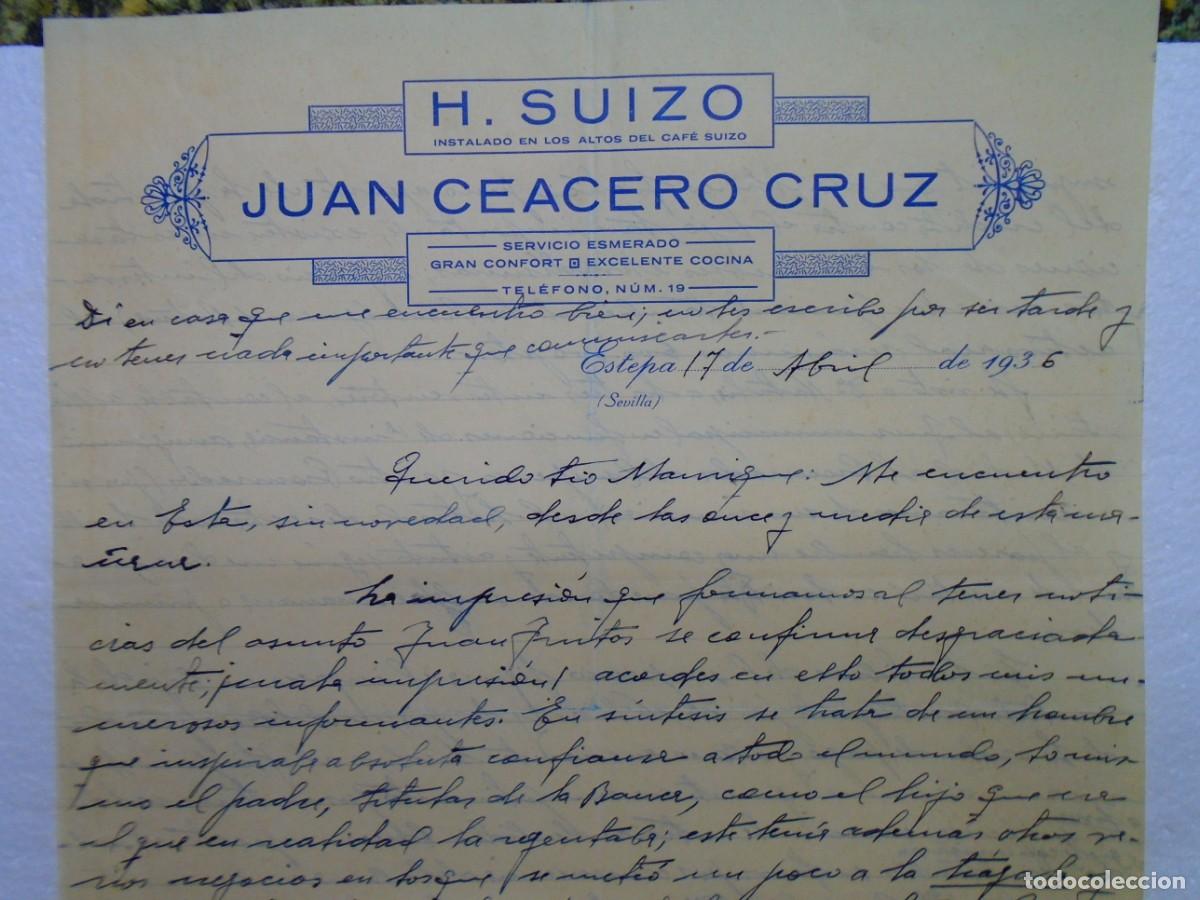 H. SUIZO
INSTALADO EN LOS ALTOS DEL CAFÉ SUIZO
JUAN CEACERO CRUZ
SERVICIO ESMERADO
GRAN CONFORT EXCELENTE COCINA
TELÉFONO, NÚM. 19
Di en casa que me encuentro bien; no les escribo por ser tarde y
no tener nada importante que comunicarles.-
Estepa 17 de Abril de 1936
(Sevilla)
Querido tio Manrique: Me encuentro
en Esta, sin novedad, desde las once y media de esta ma-
ñana.
La impresión que formamos al tener noti-
cias del asunto Juan Fruitos se confirma desgraciada
mente; ¡mala impresión! acordes en ello todos mis nu-
merosos informantes. En síntesis se trata de un hombre
que inspiraba absoluta confianza a todo el mundo, lo mis-
mo el padre, titular de la Banca, como el hijo que era
el que en realidad la regentaba; este tenía además otros va-
rios negocios en los que se metió un poco a la y
todocoleccion